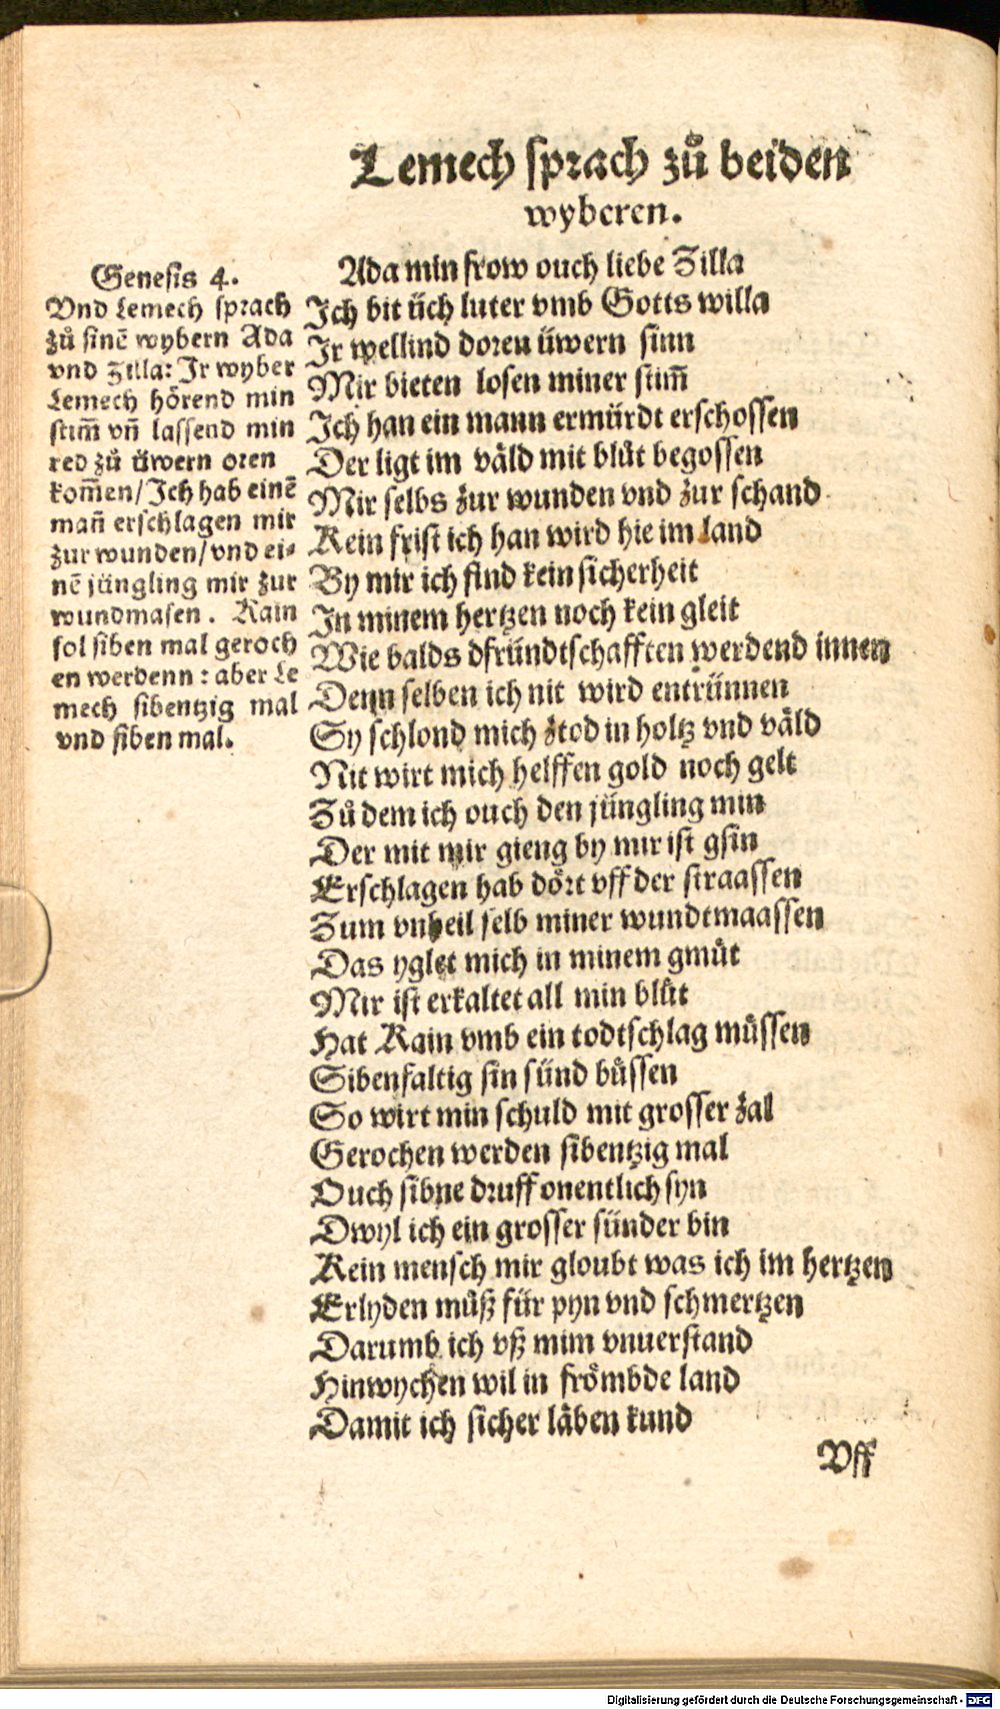 Lemech sprach zuͦ beiden
wyberen.
Genesis 4.
Vnd Lemech sprach
zuͦ sinē wybern Ada
vnd Zilla: Ir wyber
Lemech hörend min
stim̄ vn̄ lassend min
red zuͦ üwern oren
kom̄en/Ich hab einē
man̄ erschlagen mir
zur wunden/vnd ei⸗
nē jüngling mir zur
wundmasen. Kain
sol siben mal geroch
en werdenn: aber Le
mech sibentzig mal
vnd siben mal.
Ada min frow ouch liebe Zilla
Ich bit üch luter vmb Gotts willa
Ir wellind doren üwern sinn
Mir bieten losen miner stim̄
Ich han ein mann ermürdt erschossen
Der ligt im väld mit bluͦt begossen
Mir selbs zur wunden vnd zur schand
Kein frist ich han wird hie im land
By mir ich find kein sicherheit
In minem hertzen noch kein gleit
Wie balds dfründtschafften werdend innen
Denn selben ich nit wird entrünnen
Sy schlond mich ztod in holtz vnd väld
Nit wirt mich helffen gold noch gelt
Zuͦ dem ich ouch den jüngling min
Der mit mir gieng by mir ist gsin
Erschlagen hab dört vff der straassen
Zum vnheil selb miner wundtmaassen
Das yglet mich in minem gmuͤt
Mir ist erkaltet all min bluͤt
Hat Kain vmb ein todtschlag muͤssen
Sibenfaltig sin sünd buͤssen
So wirt min schuld mit grosser zal
Gerochen werden sibentzig mal
Ouch sibne druff onentlich syn
Dwyl ich ein grosser sünder bin
Kein mensch mir gloubt was ich im hertzen
Erlyden muͦß für pyn vnd schmertzen
Darumb ich vß mim vnuerstand
Hinwychen wil in frömbde land
Damit ich sicher läben kund
Vff
Digitalisierung gefördert durch die Deutsche Forschungsgemeinschaft - DFG